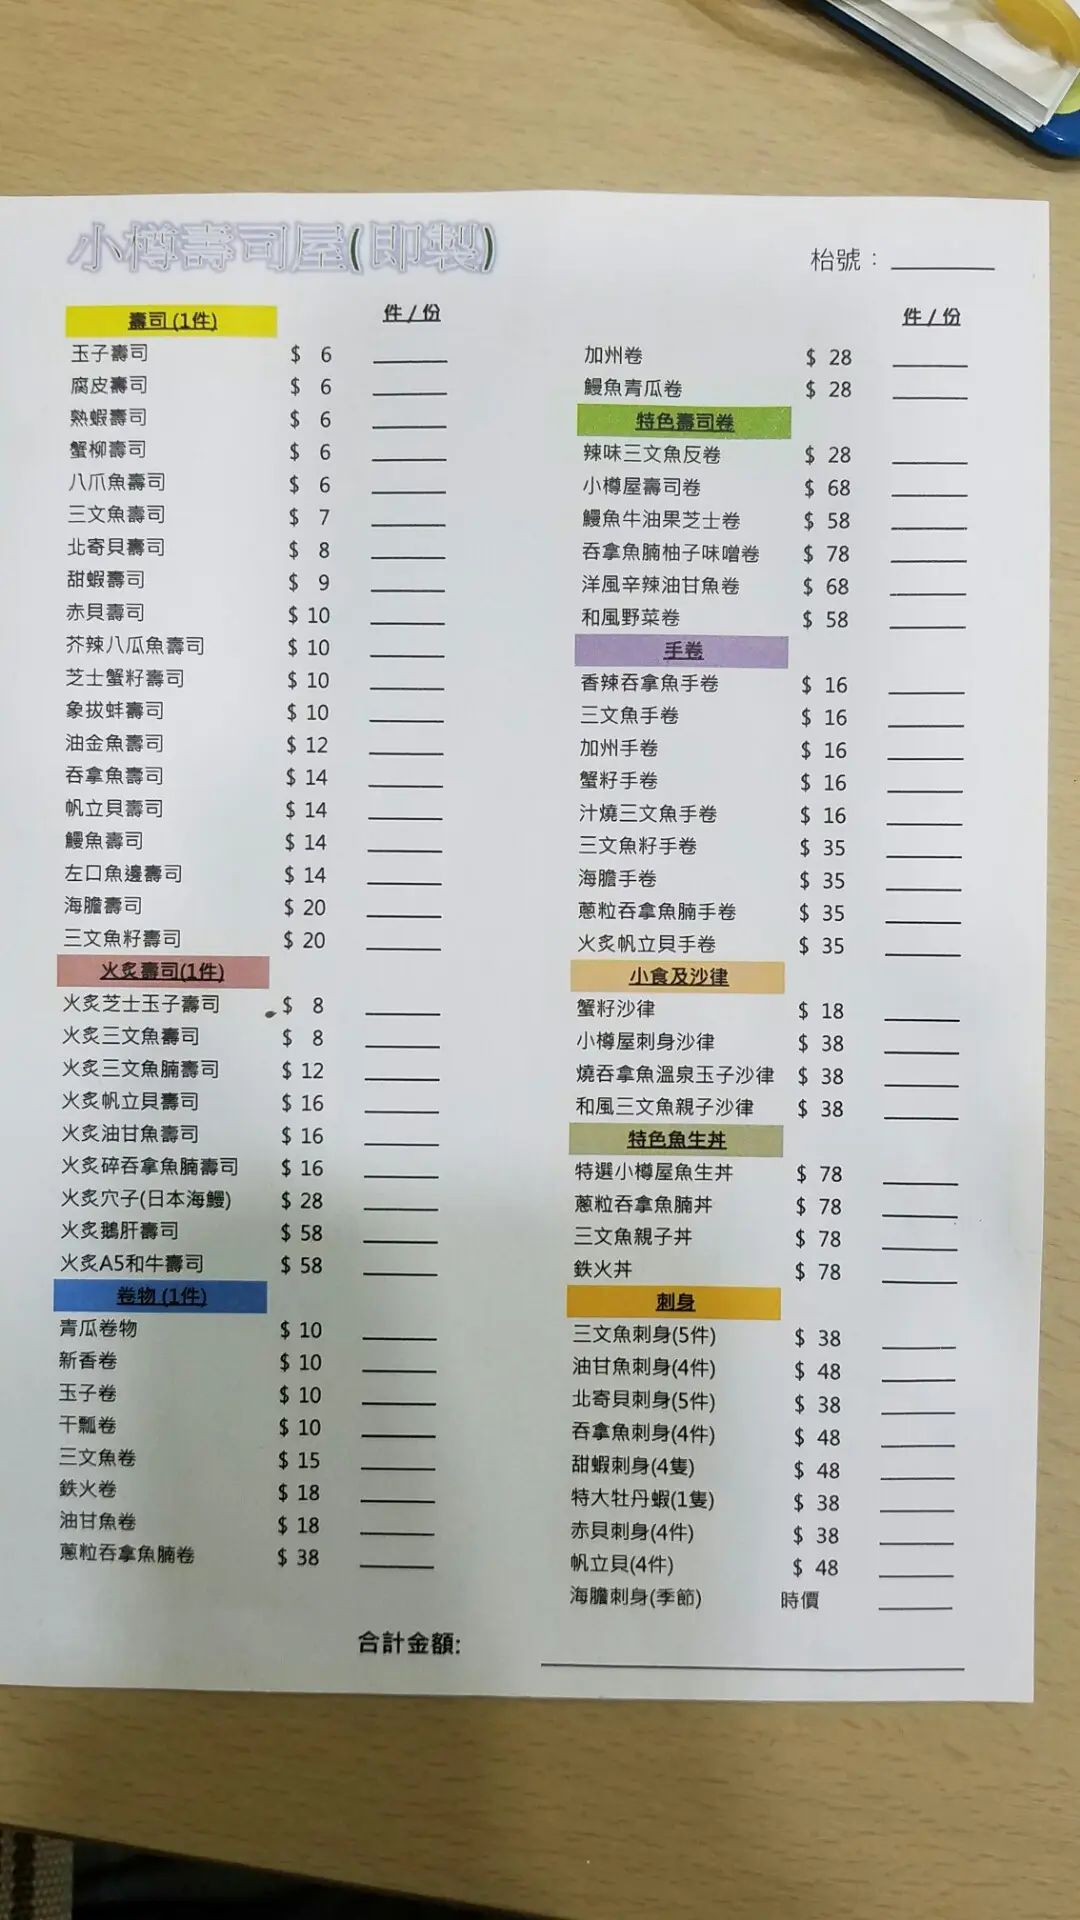 小樽壽司屋(即製)
枱號：
壽司 (1件) 件 / 份
玉子壽司 $ 6
腐皮壽司 $ 6
熟蝦壽司 $ 6
蟹柳壽司 $ 6
八爪魚壽司 $ 6
三文魚壽司 $ 7
北寄貝壽司 $ 8
甜蝦壽司 $ 9
赤貝壽司 $ 10
芥辣八瓜魚壽司 $ 10
芝士蟹籽壽司 $ 10
象拔蚌壽司 $ 10
油金魚壽司 $ 12
吞拿魚壽司 $ 14
帆立貝壽司 $ 14
鰻魚壽司 $ 14
左口魚邊壽司 $ 14
海膽壽司 $ 20
三文魚籽壽司 $ 20
火炙壽司(1件)
火炙芝士玉子壽司 $ 8
火炙三文魚壽司 $ 8
火炙三文魚腩壽司 $ 12
火炙帆立貝壽司 $ 16
火炙油甘魚壽司 $ 16
火炙碎吞拿魚腩壽司 $ 16
火炙穴子(日本海鰻) $ 28
火炙鵝肝壽司 $ 58
火炙A5和牛壽司 $ 58
卷物 (1件)
青瓜卷物 $ 10
新香卷 $ 10
玉子卷 $ 10
干瓢卷 $ 10
三文魚卷 $ 15
鉄火卷 $ 18
油甘魚卷 $ 18
蔥粒吞拿魚腩卷 $ 38
件 / 份
加州卷 $ 28
鰻魚青瓜卷 $ 28
特色壽司卷
辣味三文魚反卷 $ 28
小樽屋壽司卷 $ 68
鰻魚牛油果芝士卷 $ 58
吞拿魚腩柚子味噌卷 $ 78
洋風辛辣油甘魚卷 $ 68
和風野菜卷 $ 58
手卷
香辣吞拿魚手卷 $ 16
三文魚手卷 $ 16
加州手卷 $ 16
蟹籽手卷 $ 16
汁燒三文魚手卷 $ 16
三文魚籽手卷 $ 35
海膽手卷 $ 35
蔥粒吞拿魚腩手卷 $ 35
火炙帆立貝手卷 $ 35
小食及沙律
蟹籽沙律 $ 18
小樽屋刺身沙律 $ 38
燒吞拿魚溫泉玉子沙律 $ 38
和風三文魚親子沙律 $ 38
特色魚生丼
特選小樽屋魚生丼 $ 78
蔥粒吞拿魚腩丼 $ 78
三文魚親子丼 $ 78
鉄火丼 $ 78
刺身
三文魚刺身(5件) $ 38
油甘魚刺身(4件) $ 48
北寄貝刺身(5件) $ 38
吞拿魚刺身(4件) $ 48
甜蝦刺身(4隻) $ 48
特大牡丹蝦(1隻) $ 38
赤貝刺身(4件) $ 38
帆立貝(4件) $ 48
海膽刺身(季節) 時價
合計金額: